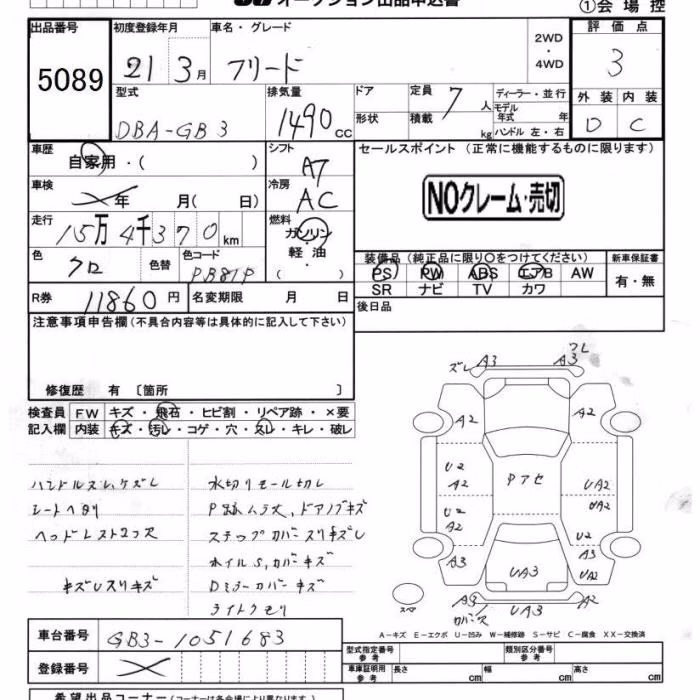 オークション出品申込書
①会 場 控
出品番号 初度登録年月 車名・グレード 2WD ・ 4WD 評 価 点
5089 21 3月 フリード 3
型式 排気量 ドア 定員 7人 ディーラー・並行
DBA-GB3 1490cc 形状 積載 kg モデル年式 年 ハンドル 左・右
外 装 内 装
D C
車歴 自家用・( ) シフト A7 セールスポイント (正常に機能するものに限ります)
車検 年 月( 日) 冷房 AC NOクレーム・売切
走行 15万4千370km 燃料 ガソリン 軽・油 ( )
色 クロ 色替 色コード PB81P
装備品 (純正品に限り○をつけてください) 新車保証書
PS PW ABS エアB AW 有・無
SR ナビ TV カワ
R券 11860円 名変期限 月 日 後日品
注意事項申告欄(不具合内容等は具体的に記入して下さい)
修復歴 有 〔箇所 〕
検査員 FW キズ・飛石・ヒビ割・リペア跡・×要
記入欄 内装 キズ・汚レ・コゲ・穴・スレ・キレ・破レ
ハンドルスレ、ケズレ 水切リモール切レ
シートヘタリ P跡ムラ大、ドアノブキズ
ステップカバースリキズレ
ホイルS,カバーキズ
キズUスリキズ Dミラーカバーキズ
ライトクモリ
ズレ A3 A3 ズレ
A2 A2
U2 A2 Pアセ UA2 UA2
U2 A2 U2 A3
A3 UA3 UA2
スペア A3 UA3 A3
A-キズ E-エクボ U-凹み W-補修跡 S-サビ C-腐食 XX-交換済
車台番号 GB3-1051683 型式指定番号 参考 類別区分番号 参考
登録番号 車庫証明用 参考 長さ cm 幅 cm 高さ cm
希望出品コーナー(コーナーは各会場により異なります)